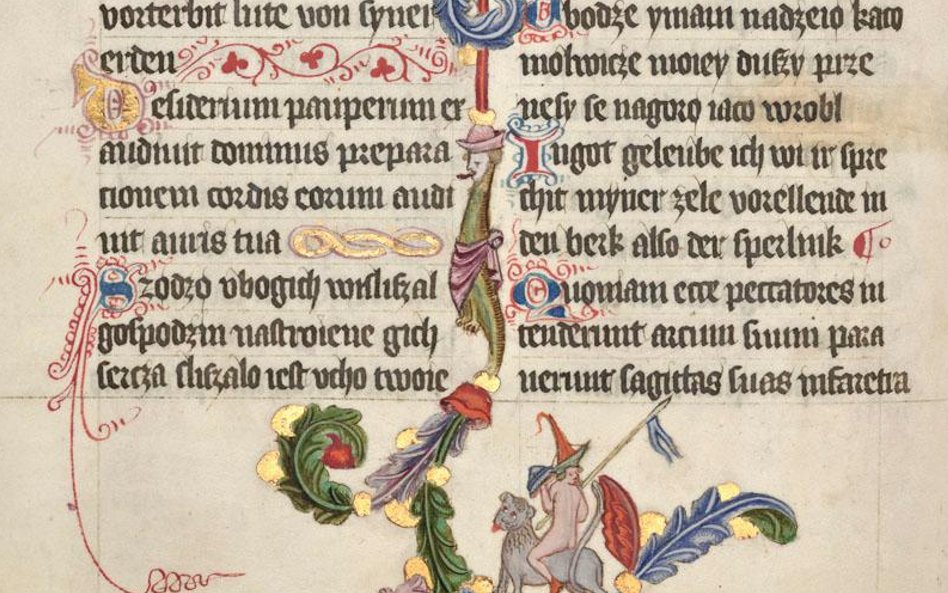 vorterbit lute von syner
erden
Desiderium pauperum ex
audiuit dominus prepara
cionem cordis eorum audi
uit auris tua
Szodzo vbogich wisluszal
gospodzin nastroiene gich
sercza slyszalo iest vcho twoie
bodze ymam nadzeio kaco
molwicze moiey duszy prze
nesy se nagoro iaco wrobl
In got geleube ich wi ir spre
chit myner zele vorellende in
den berk also der sperlink
Quoniam ecce peccatores in
tenderunt arcum suum para
uerunt sagittas suas infaretra